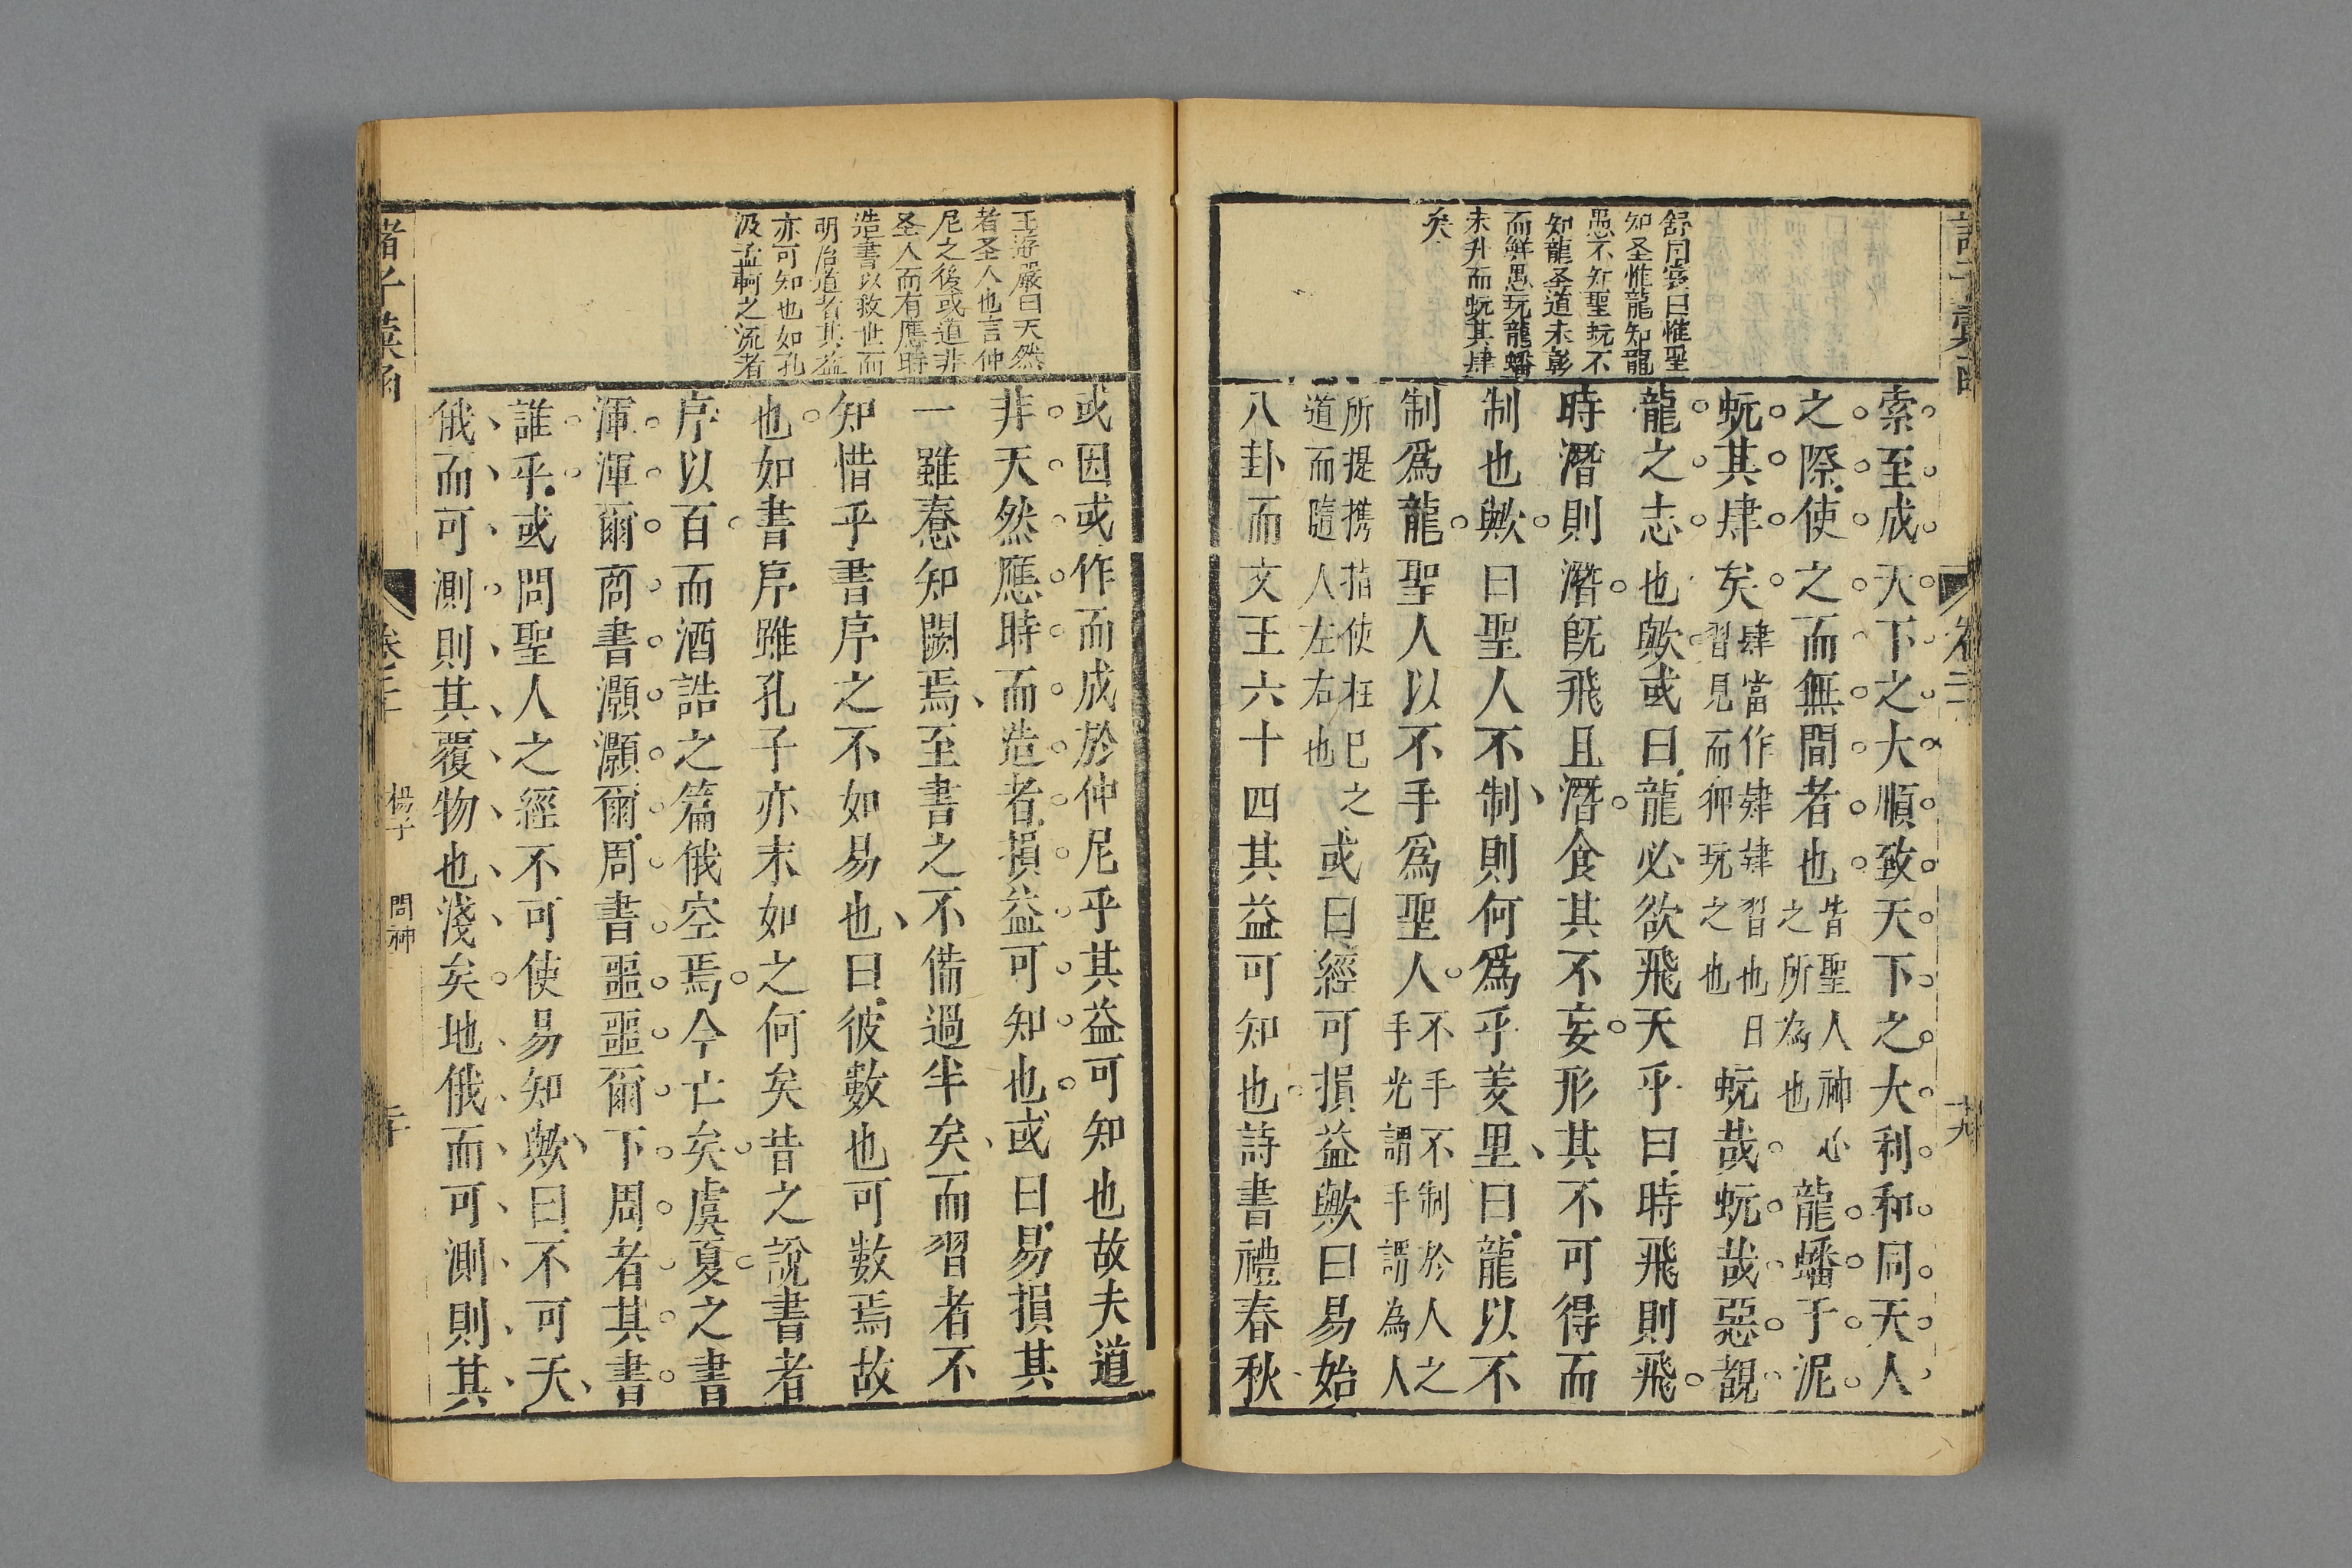 舒同寰曰惟聖
知圣惟龍知龍
愚不知聖蚖不
知龍圣道未彰
而鮮愚玩龍蟠
未升而蚖其肆
矣
索至成天下之大順致天下之大利和同天人
之際使之而無間者也皆聖人神心之所為也龍蟠于泥
蚖其肆矣肆當作肄肄習也日習見而狎玩之也蚖哉蚖哉惡覩
龍之志也歟或曰龍必欲飛天乎曰時飛則飛
時潛則潛旣飛且潛食其不妄形其不可得而
制也歟曰聖人不制則何爲乎羑里曰龍以不
制爲龍聖人以不手爲聖人不手不制於人之手光謂手謂為人
所提携指使枉已之道而隨人左右也或曰經可損益歟曰易始
八卦而文王六十四其益可知也詩書禮春秋
卷二
十九
王遵巖曰天然
者圣人也言仲
尼之後或道非
圣人而有應時
造書以救世而
明治道者其益
亦可知也如孔
汲孟軻之流者
或因或作而成於仲尼乎其益可知也故夫道
非天然應時而造者損益可知也或曰易損其
一雖惷知闕焉至書之不備過半矣而習者不
知惜乎書序之不如易也曰彼數也可數焉故
也如書序雖孔子亦末如之何矣昔之說書者
序以百而酒誥之篇俄空焉今亡矣虞夏之書
渾渾爾商書灝灝爾周書噩噩爾下周者其書
誰乎或問聖人之經不可使易知歟曰不可天
俄而可測則其覆物也淺矣地俄而可測則其
卷二
楊子
問神
二十